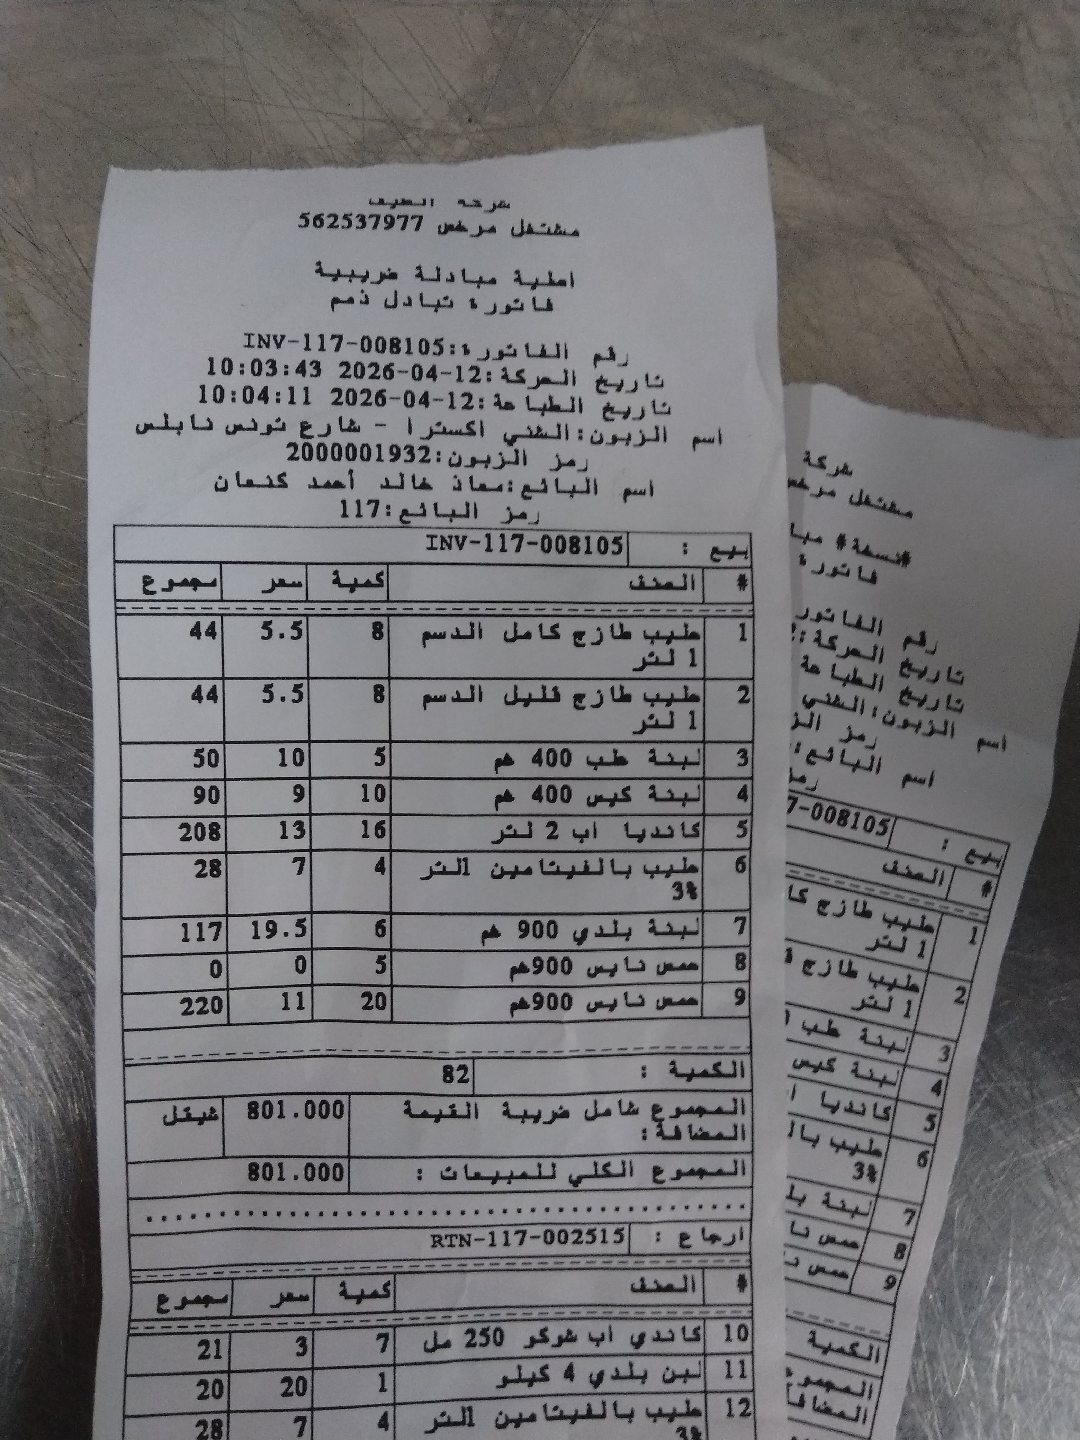 شركة الطيف
مشتغل مرخص 562537977
اصلية مبادلة ضريبية
فاتورة تبادل ذمم
رقم الفاتورة:INV-117-008105
تاريخ الحركة:12-04-2026 10:03:43
تاريخ الطباعة:12-04-2026 10:04:11
اسم الزبون:الشني اكسترا - شارع تونس نابلس
رمز الزبون:2000001932
اسم البائع:معاذ خالد أحمد كنعان
رمز البائع:117
بيع : INV-117-008105
# الصنف كمية سعر مجموع
1 حليب طازج كامل الدسم 8 5.5 44
1 لتر
2 حليب طازج قليل الدسم 8 5.5 44
1 لتر
3 لبنة علب 400 غم 5 10 50
4 لبنة كيس 400 غم 10 9 90
5 كانديا اب 2 لتر 16 13 208
6 حليب بالفيتامين 1لتر 4 7 28
3%
7 لبنة بلدي 900 غم 6 19.5 117
8 حمص نايس 900غم 5 0 0
9 حمص نايس 900غم 20 11 220
الكمية : 82
المجموع شامل ضريبة القيمة 801.000 شيقل
المضافة:
المجموع الكلي للمبيعات : 801.000
ارجاع : RTN-117-002515
# الصنف كمية سعر مجموع
10 كاندي اب شوكو 250 مل 7 3 21
11 لبن بلدي 4 كيلو 1 20 20
12 حليب بالفيتامين 1لتر 4 7 28
3%
شركة
مشتغل مرخص
#نسخة#
فاتورة
رقم
تاريخ الحركة:
تاريخ الطباعة
اسم الزبون:الشني
رمز
اسم البائع:
بيع : 7-008105
# الصنف
1 حليب طازج
1 لتر
2 حليب طازج
1 لتر
3 لبنة علب
4 لبنة كيس
5 كانديا
6 حليب
3%
7 لبنة
8 حمص
9 حمص
الكمية
المجموع